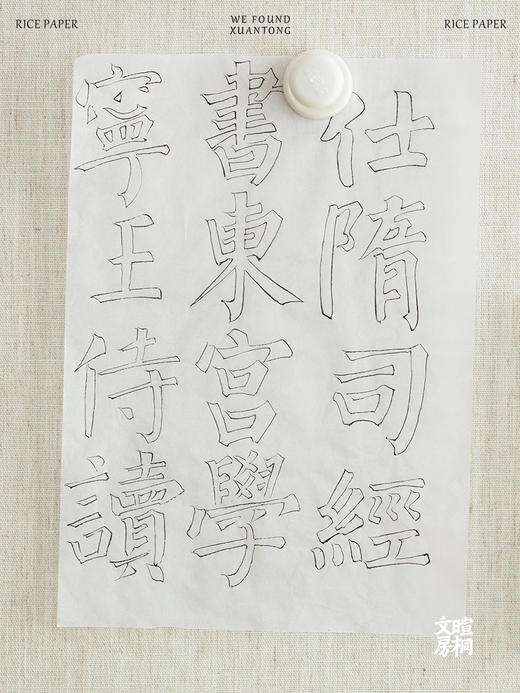 RICE PAPER
WE FOUND
XUANTONG
RICE PAPER
仕隋司經
書東宮學
寧王侍讀
暄桐
文房